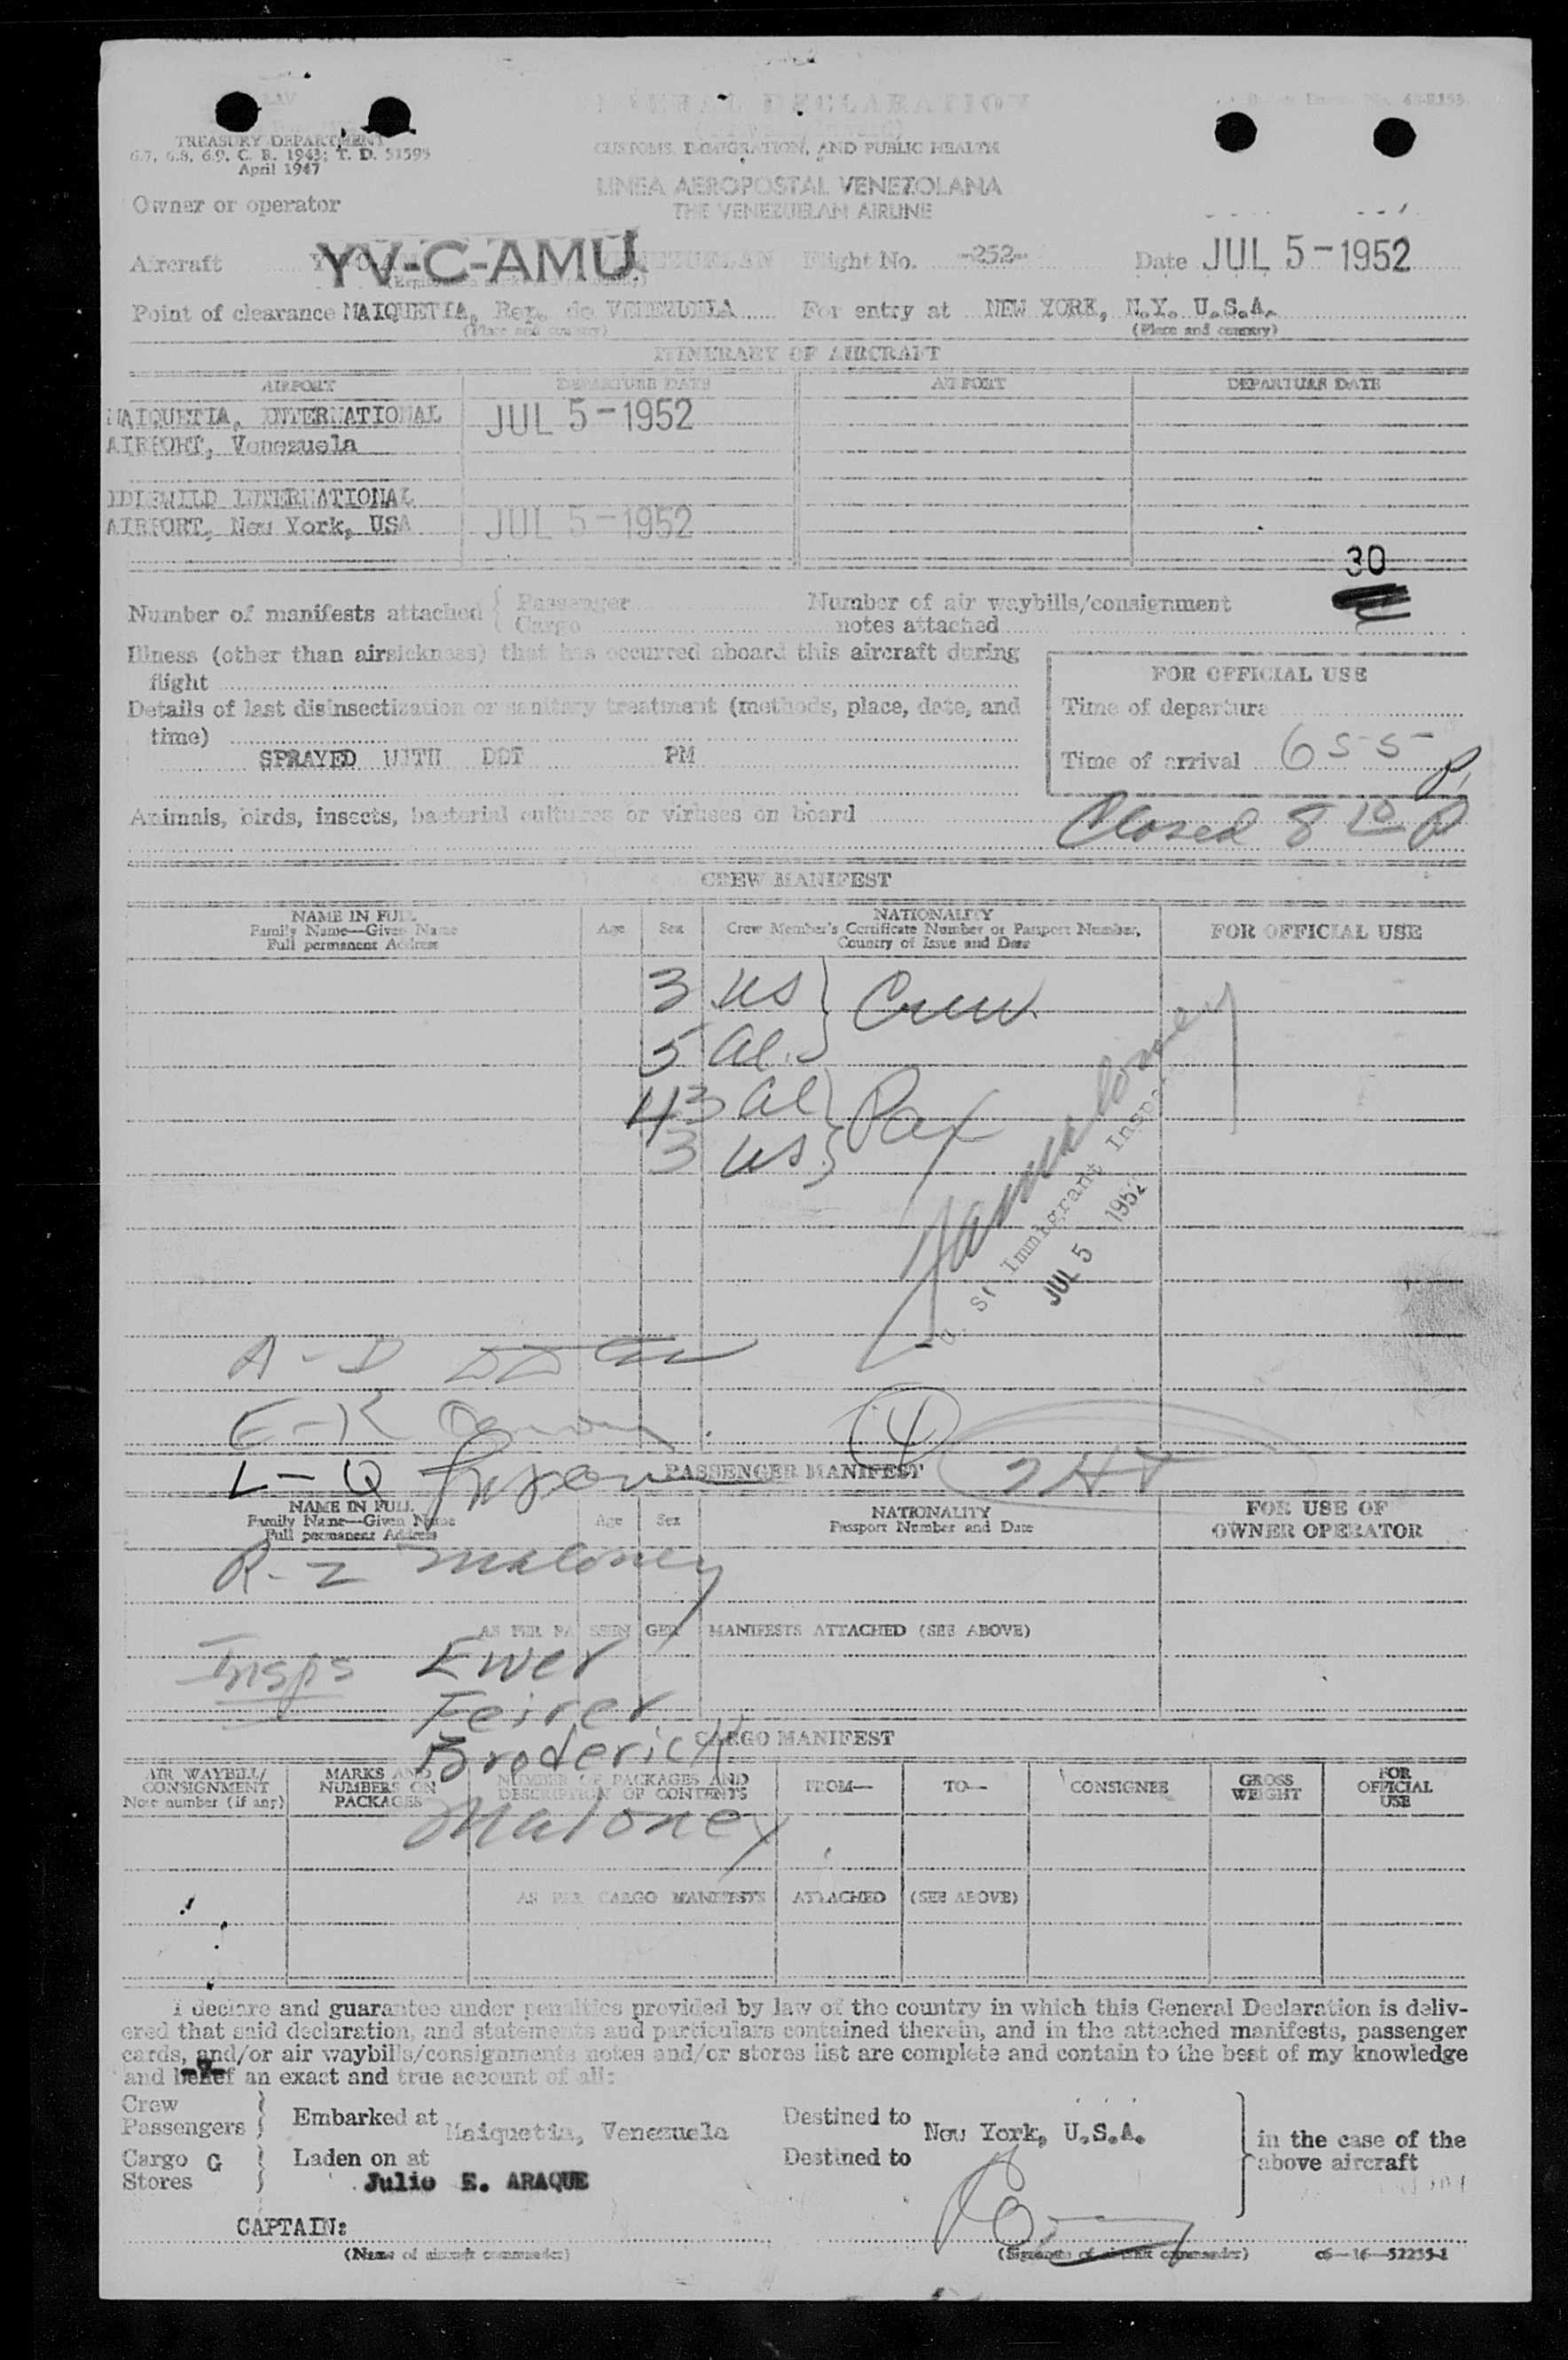 GENERAL DECLARATION
TREASURY DEPARTMENT
6.7, 6.8, 6.9, C. R. 1943; T. D. 51595
April 1947
CUSTOMS, IMMIGRATION, AND PUBLIC HEALTH
LINEA AEROPOSTAL VENEZOLANA
THE VENEZUELAN AIRLINE
Owner or operator
Aircraft YV-C-AMU VENEZUELAN Flight No. -252- Date JUL 5-1952
Point of clearance MAIQUETIA, Rep. de VENEZUELA For entry at NEW YORK, N.Y. U.S.A.
(Place and country) (Place and country)
ITINERARY OF AIRCRAFT
AIRPORT DEPARTURE DATE AIRPORT DEPARTURE DATE
MAIQUETIA, INTERNATIONAL JUL 5-1952
AIRPORT, Venezuela
IDLEWILD INTERNATIONAL
AIRPORT, New York, USA JUL 5-1952
30
Number of manifests attached { Passenger Number of air waybills/consignment
Cargo notes attached
Illness (other than airsickness) that has occurred aboard this aircraft during
flight
FOR OFFICIAL USE
Details of last disinsectization or sanitary treatment (methods, place, date, and
time)
Time of departure
SPRAYED WITH DDT PM
Time of arrival 655 P.
Animals, birds, insects, bacterial cultures or viruses on board
Closed 8 10 P
CREW MANIFEST
NAME IN FULL
Family Name—Given Name
Full permanent Address
Age Sex
NATIONALITY
Crew Member's Certificate Number or Passport Number,
Country of Issue and Date
FOR OFFICIAL USE
3 US } Crew
5 Al.
43 Al } Pax
3 US
U. S. Immigrant Inspe
JUL 5 1952
A-D
E-K
L-Q
4
PASSENGER MANIFEST
NAME IN FULL
Family Name—Given Name
Full permanent Address
Age Sex
NATIONALITY
Passport Number and Date
FOR USE OF
OWNER OPERATOR
R-Z Maloney
AS PER PASSENGER MANIFESTS ATTACHED (SEE ABOVE)
Insps Ewer
Feirer
Broderick
CARGO MANIFEST
AIR WAYBILL/
CONSIGNMENT
Note number (if any)
MARKS AND
NUMBERS ON
PACKAGES
NUMBER OF PACKAGES AND
DESCRIPTION OF CONTENTS
FROM— TO— CONSIGNEE
GROSS
WEIGHT
FOR
OFFICIAL
USE
Maloney
AS PER CARGO MANIFESTS ATTACHED (SEE ABOVE)
I declare and guarantee under penalties provided by law of the country in which this General Declaration is deliv-
ered that said declaration, and statements and particulars contained therein, and in the attached manifests, passenger
cards, and/or air waybills/consignments notes and/or stores list are complete and contain to the best of my knowledge
and belief an exact and true account of all:
Crew
Passengers } Embarked at Maiquetia, Venezuela Destined to New York, U.S.A.
Cargo G } Laden on at Destined to
Stores
in the case of the
above aircraft
Julio E. ARAQUE
CAPTAIN:
(Name of aircraft commander) (Signature of aircraft commander) c6—16—52255-1